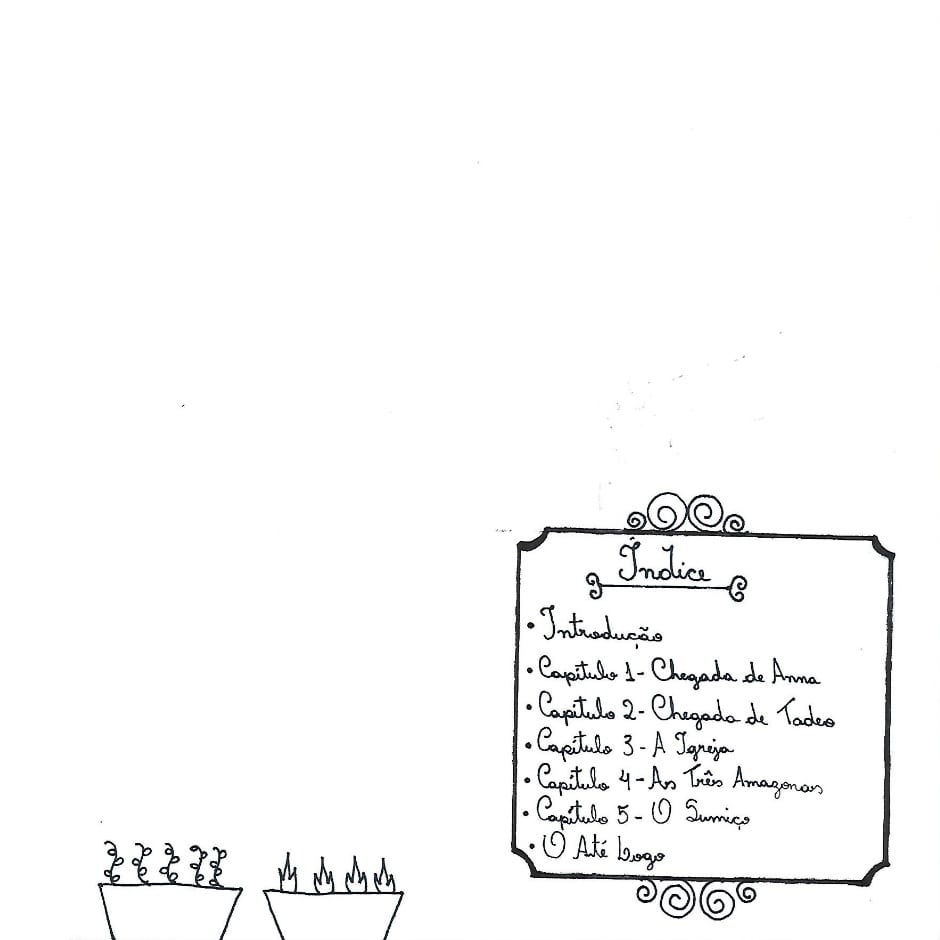 Índice
• Introdução
• Capítulo 1 - Chegada de Anna
• Capítulo 2 - Chegada de Tadeo
• Capítulo 3 - A Igreja
• Capítulo 4 - As Três Amazonas
• Capítulo 5 - O Sumiço
• O Até Logo